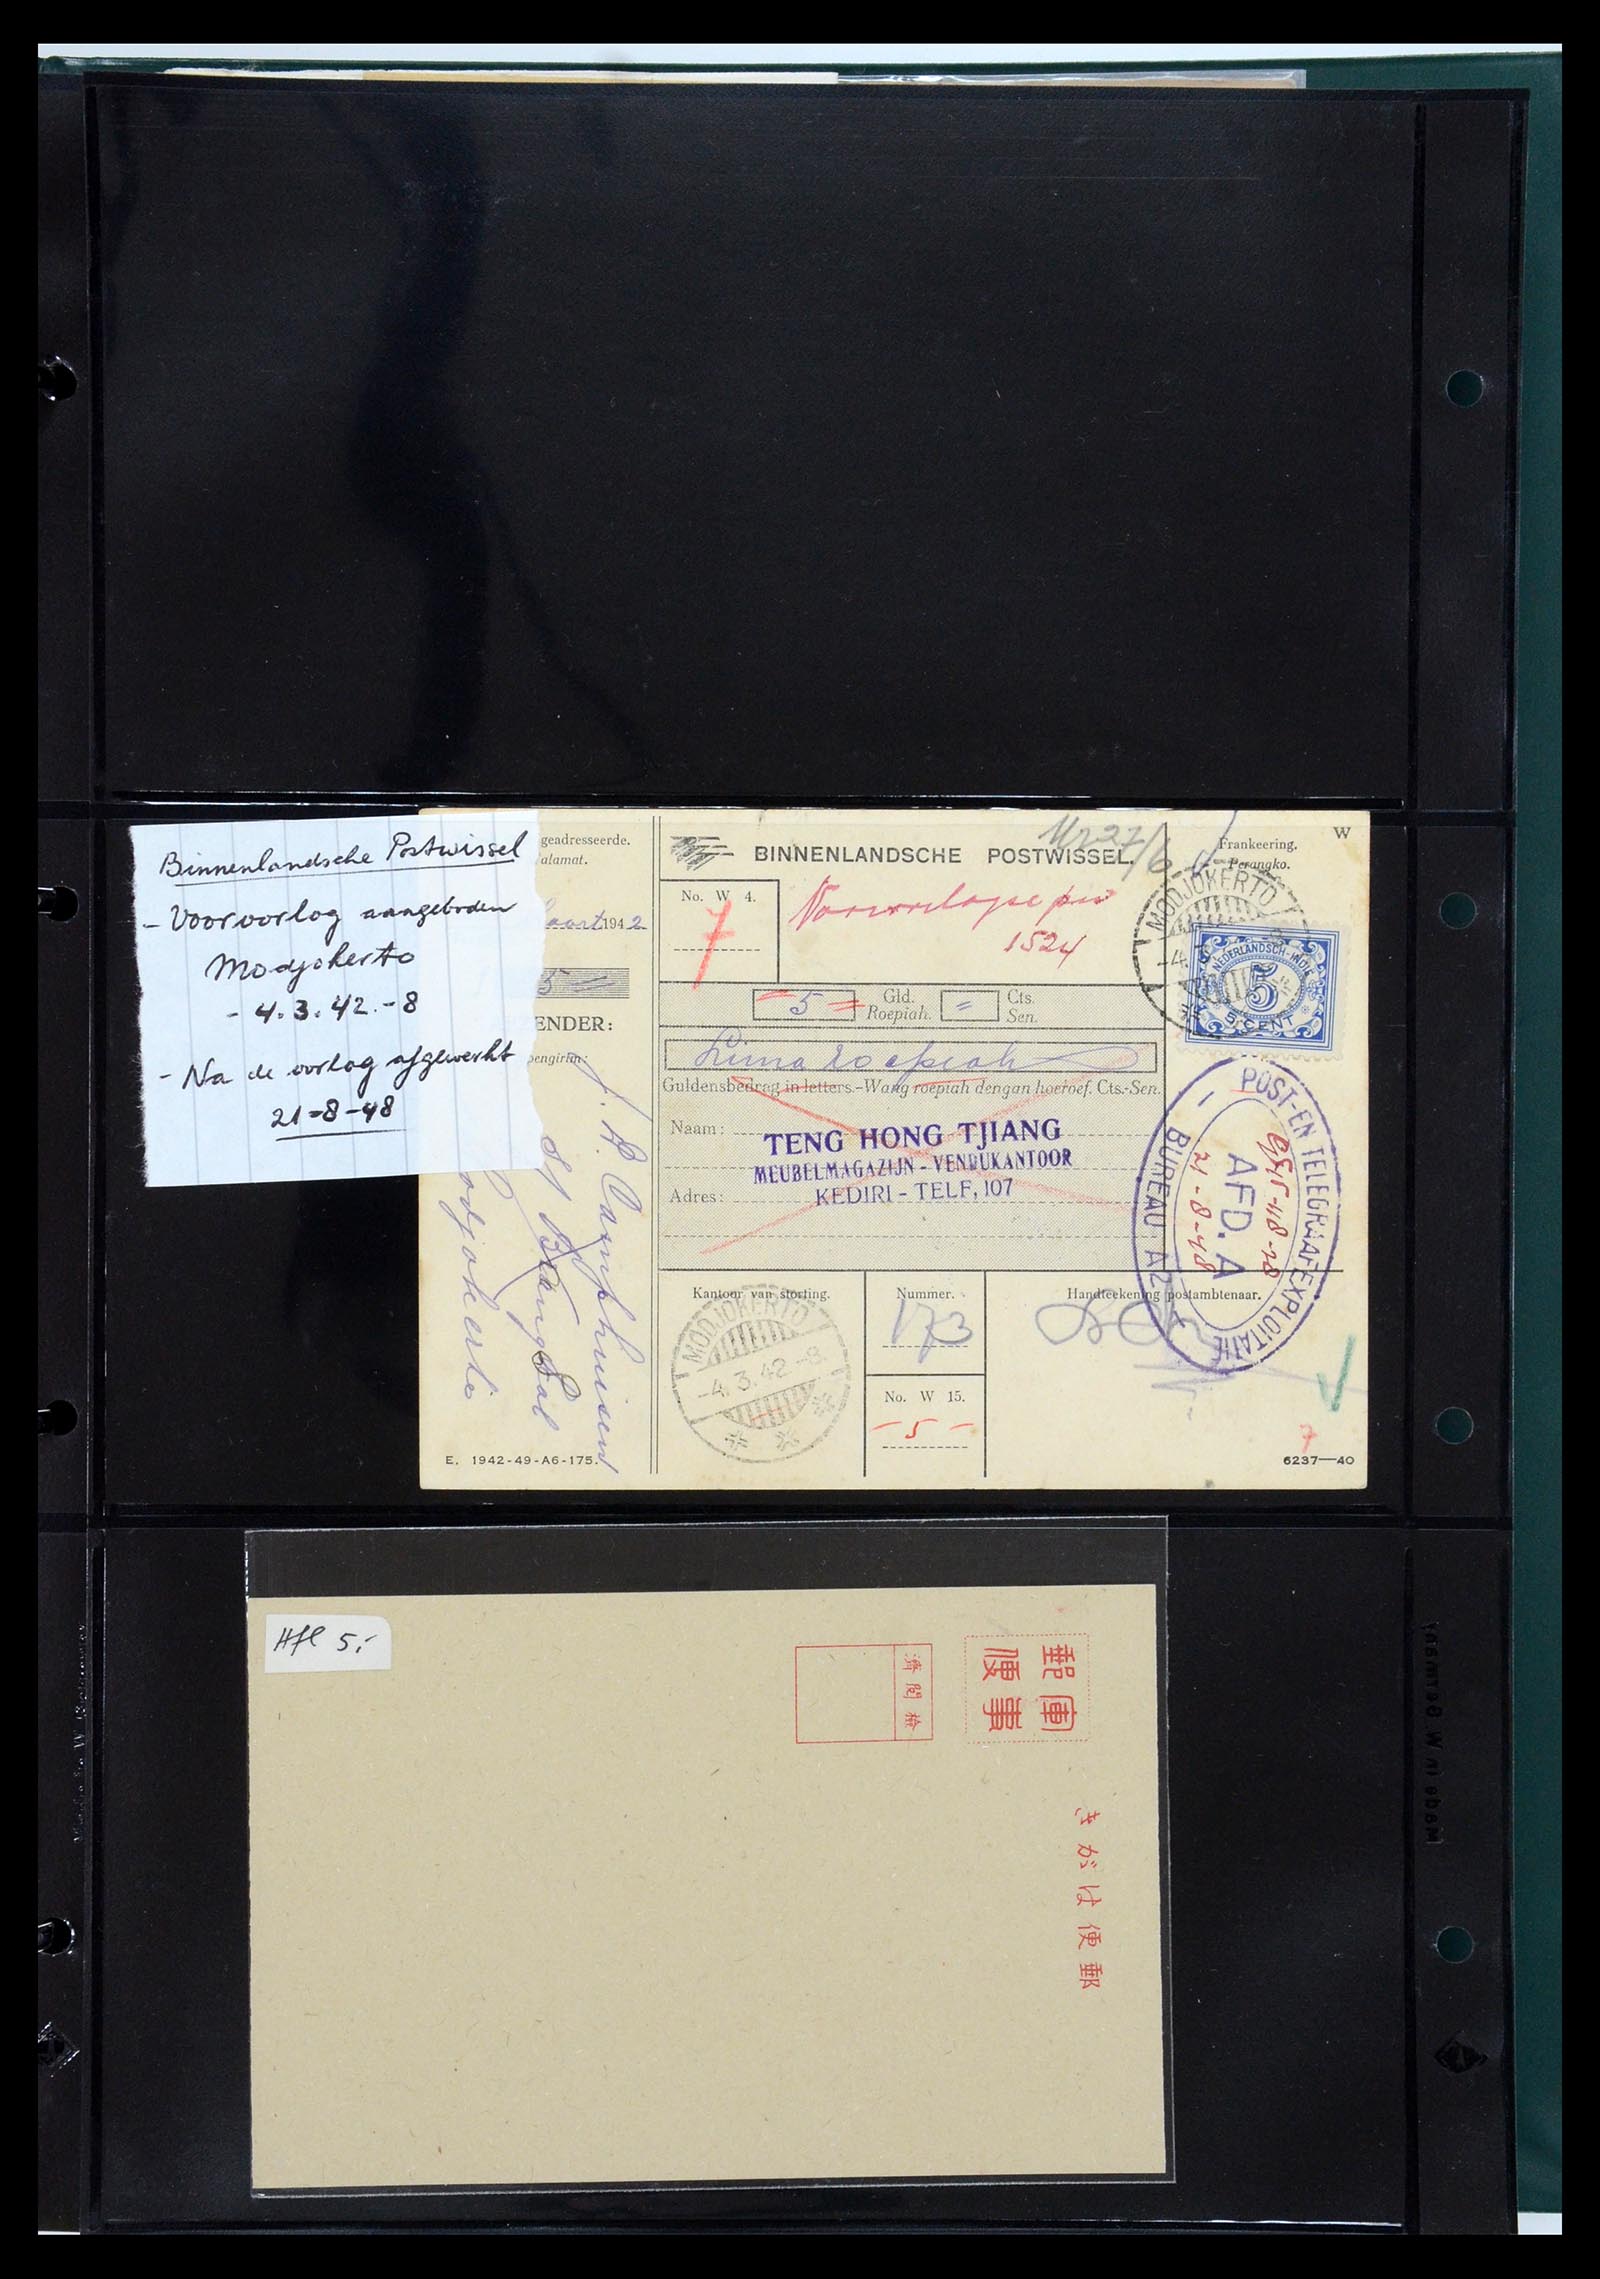 Binnenlandsche Postwissel
- Voor oorlog aangeboden
Modjokerto
- 4.3.42.-8
- Na de oorlog afgewerkt
21-8-48
geadresseerde.
alamat.
Maart 1942
5
ENDER:
pengirim:
J. H. Camphuisen
Modjokerto
E. 1942-49-A6-175.
BINNENLANDSCHE POSTWISSEL.
No. W 4.
7
1524
Frankeering.
Perangko.
W
MODJOKERTO
NEDERLANDSCH-INDIE
5
5 CENT
= 5 = Gld. = Cts.
Roepiah. Sen.
Lima roepiah
Guldensbedrag in letters.-Wang roepiah dengan hoeroef. Cts.-Sen.
Naam:
TENG HONG TJIANG
MEUBELMAGAZIJN - VENDUKANTOOR
Adres:
KEDIRI - TELF. 107
POST- EN TELEGRAAFEXPLOITATIE
AFD. A
21-8-48
BUREAU A2
Kantoor van storting.
MODJOKERTO
-4.3.42.-8
Nummer.
173
No. W 15.
- 5 -
Handteekening postambtenaar.
7
6237—40
Hfl 5,-
郵便
軍事
檢閲濟
郵便はがき